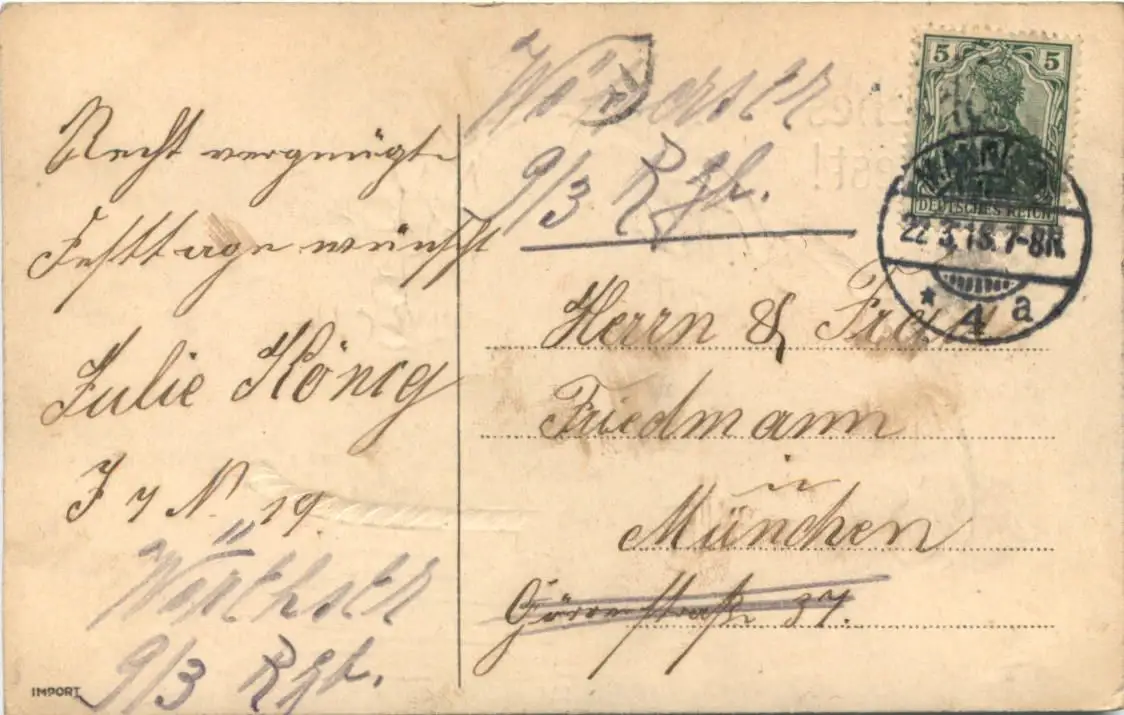 Recht vergnügte
Festtage wünscht
Julie König
J 7 N 19
Wörthstr
9/3 Rgb.
IMPORT
Wörthstr
9/3 Rgb.
5 5
DEUTSCHES REICH
22.3.13. 7-8N.
* 4 a
Herrn & Frau
Friedmann
in
München
Görresstraße 37.